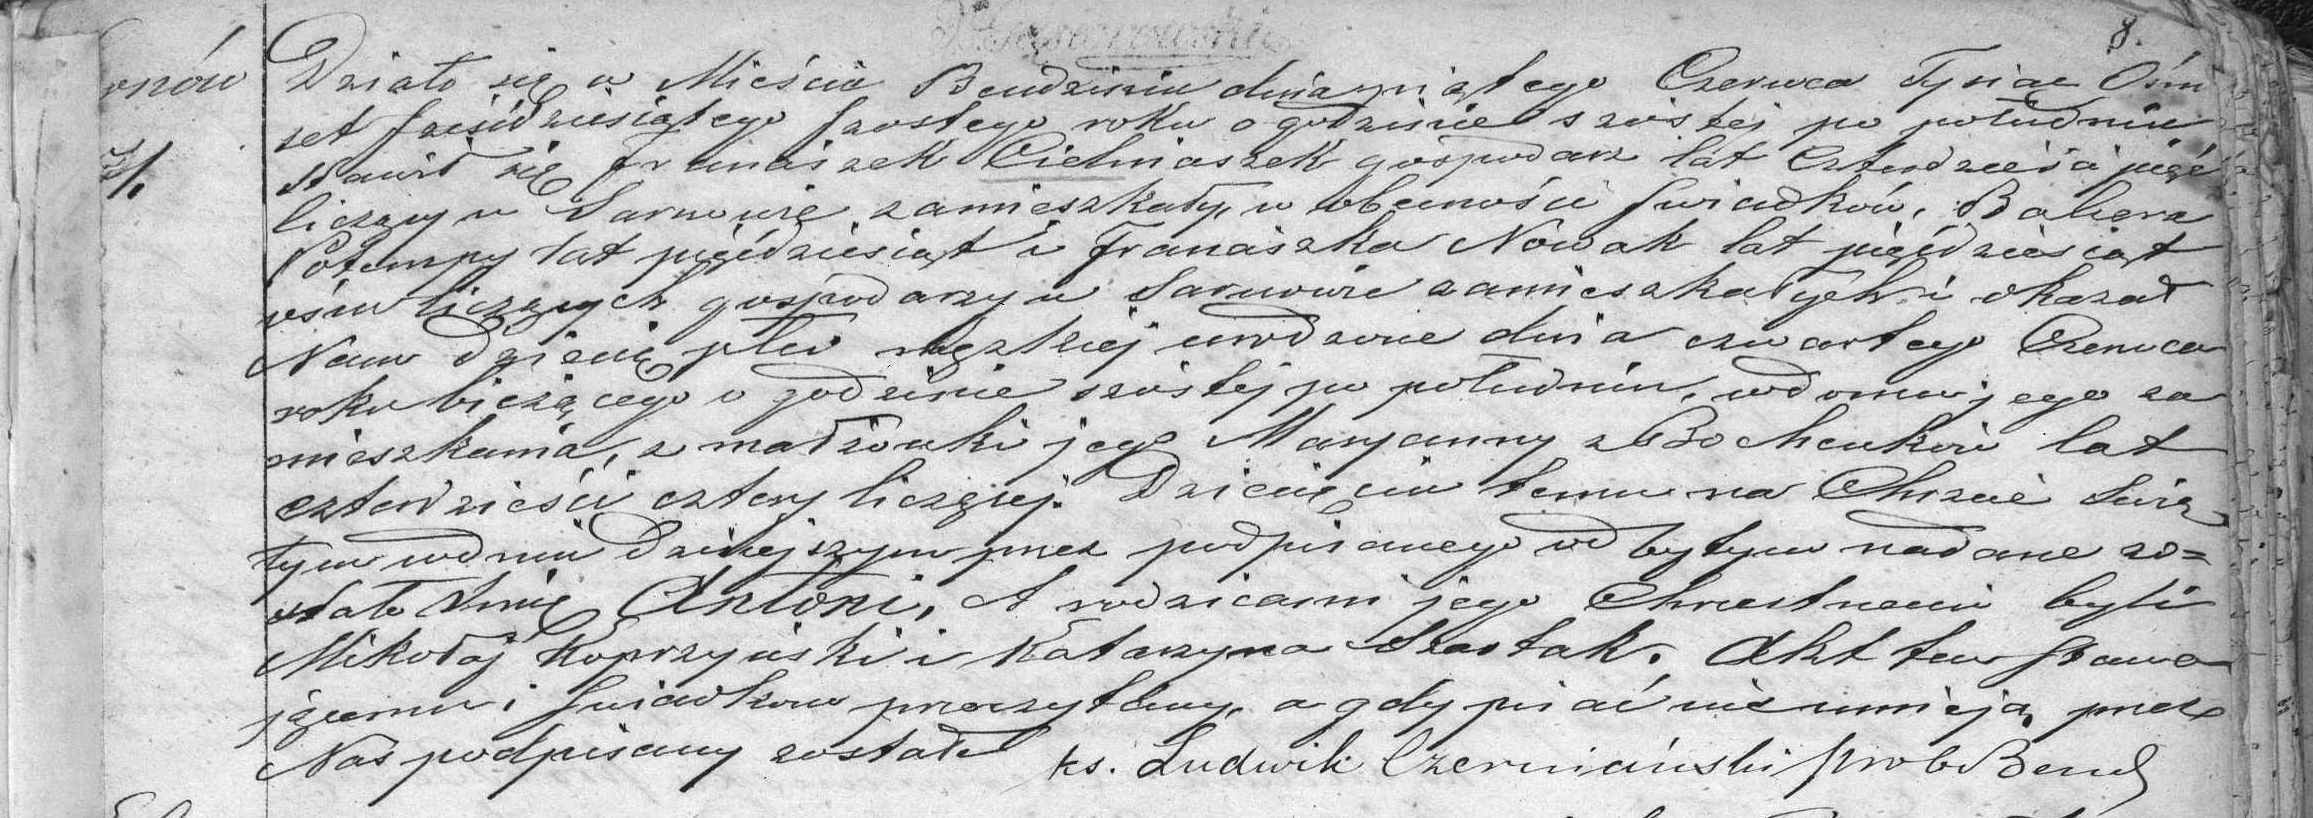 8.
Działo się w Mieście Bendzinie dnia piątego Czerwca Tysiąc Ośm
set sześćdziesiątego szóstego roku o godzinie szóstej po południu
stawił się Franciszek Cieśliaszek gospodarz lat czterdzieści pięć
liczący w Sarnowie zamieszkały, w obecności świadków, Balcera
Potempy lat pięćdziesiąt i Franciszka Nowak lat pięćdziesiąt
ośm liczących gospodarzy w Sarnowie zamieszkałych i okazał
Nam dziecię płci męzkiej urodzone dnia czwartego Czerwca
roku bieżącego o godzinie szóstej po południu, w domu jego za
mieszkania, z małżonki jego Maryanny z Bochenków lat
czterdzieści cztery liczącej. Dziecięciu temu na Chrzcie Świę
tym w dniu dzisiejszym przez podpisanego odbytym nadane zo=
stało Imię Antoni, A rodzicami jego Chrzestnemi byli
Mikołaj Koprzyński i Katarzyna Szostak. Akt ten stawa
jącemu i świadkom przeczytany, a gdy pisać nie umieją przez
Nas podpisany został ks. Ludwik Czerniański Prob Bend